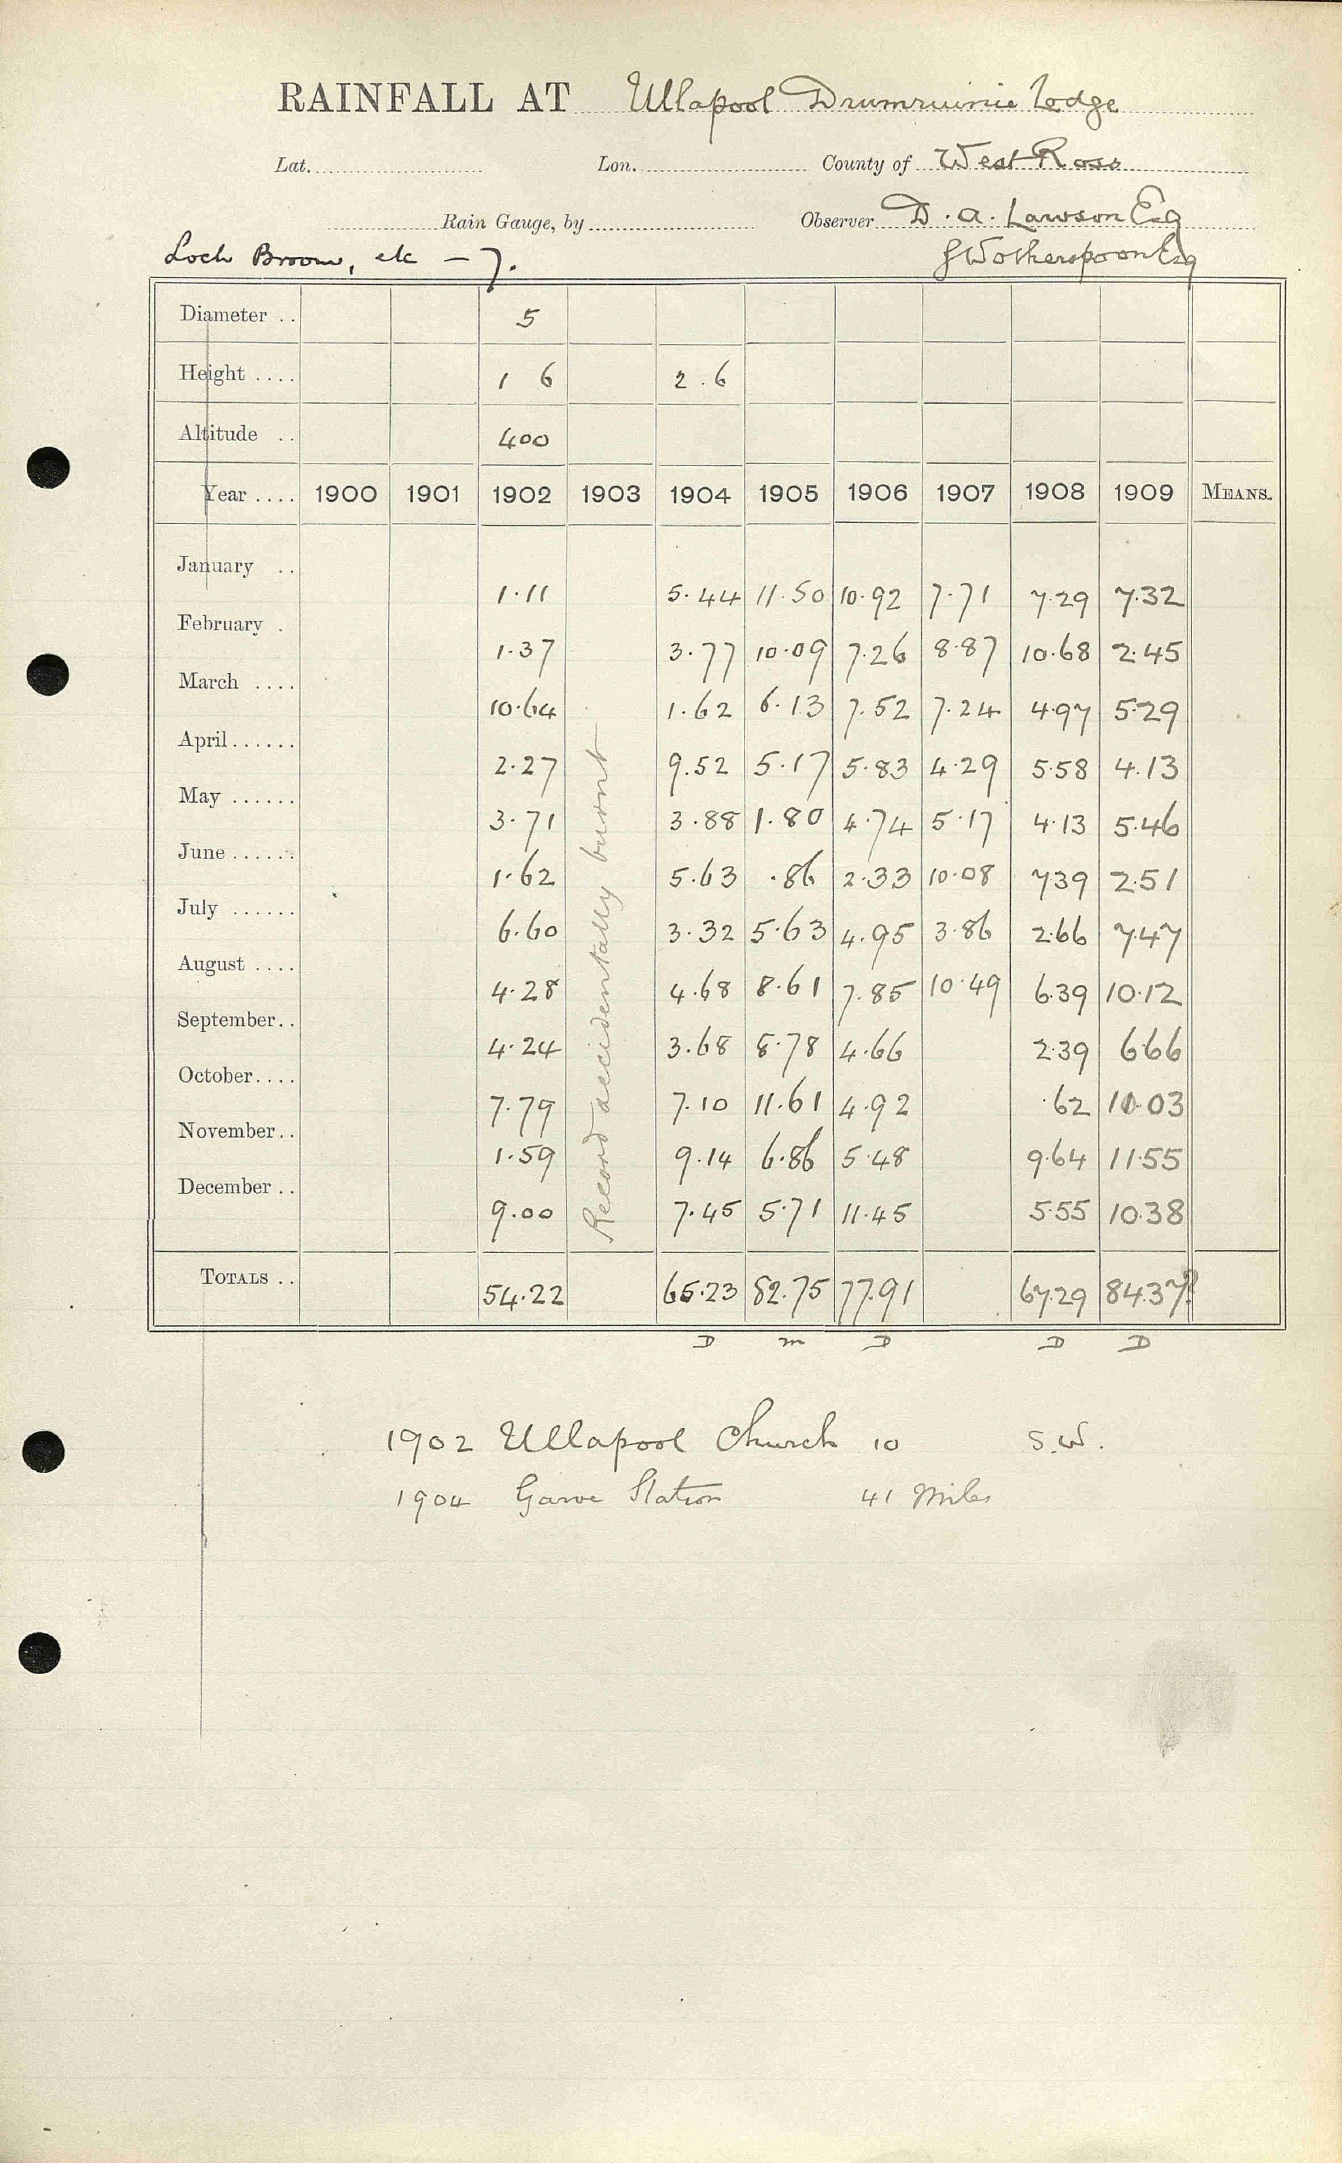 RAINFALL AT Ullapool Drumrunie Lodge
Lat. Lon. County of West Ross
Rain Gauge, by Observer D. A. Lawson Esq
Loch Broom, etc – 7. J Wotherspoon Esq
Diameter .. 5
Height .... 1 6 2.6
Altitude .. 400
Year .... 1900 1901 1902 1903 1904 1905 1906 1907 1908 1909 MEANS.
January .. 1.11 5.44 11.50 10.92 7.71 7.29 7.32
February . 1.37 3.77 10.09 7.26 8.87 10.68 2.45
March .... 10.64 1.62 6.13 7.52 7.24 4.97 5.29
April ...... 2.27 9.52 5.17 5.83 4.29 5.58 4.13
May ...... 3.71 3.88 1.80 4.74 5.17 4.13 5.46
June ...... 1.62 5.63 .86 2.33 10.08 7.39 2.51
July ...... 6.60 3.32 5.63 4.95 3.86 2.66 7.47
August .... 4.28 4.68 8.61 7.85 10.49 6.39 10.12
September .. 4.24 3.68 8.78 4.66 2.39 6.66
October .... 7.79 7.10 11.61 4.92 .62 10.03
November .. 1.59 9.14 6.86 5.48 9.64 11.55
December .. 9.00 7.45 5.71 11.45 5.55 10.38
Record accidentally burnt
TOTALS .. 54.22 65.23 82.75 77.91 67.29 84.37?
D m D D D
1902 Ullapool Church 10 S.W.
1904 Garve Station 41 Miles